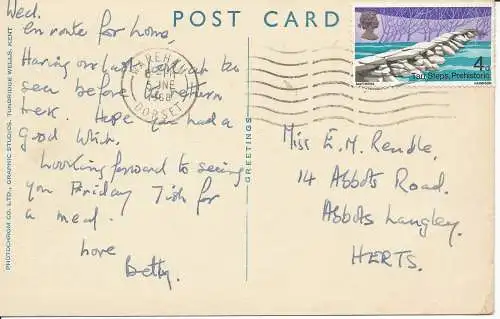 POST CARD
Wed.
en route for home.
Having our last look at the
sea before the return
trek. Hope you had a
good Whit.
Looking forward to seeing
you Friday 7ish for
a meal.
Love
Betty.
WAREHAM
5 JNE
1968
DORSET
4d
Tarr Steps, Prehistoric
HARRISON
GREETINGS
Miss E. M. Rendle.
14 Abbots Road.
Abbots Langley.
HERTS.
PHOTOCHROM CO. LTD., GRAPHIC STUDIOS, TUNBRIDGE WELLS, KENT